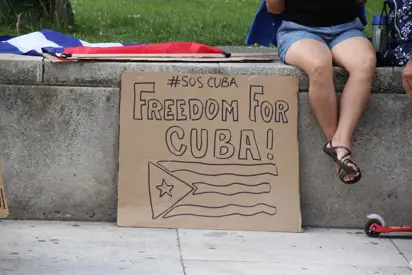 #SOS CUBA
FREEDOM FOR
CUBA!